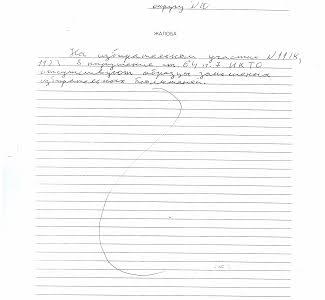 округу №10
ЖАЛОБА
На избирательном участке №1118,
1123 в нарушение ст. 64 п. 7 ИКТО
отсутствуют образцы заполненных
избирательных бюллетеней.